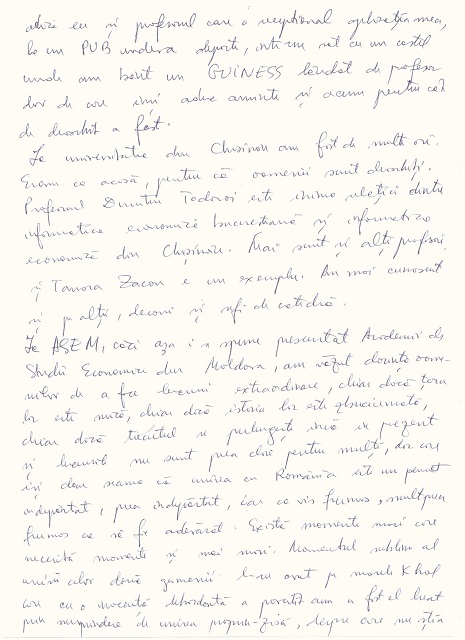 adică eu și profesorul care a recepționat aplicația mea,
la un PUB undeva departe, într-un sat cu un castel
unde am băut un GUINESS lăudat de profesor
lor de care îmi aduc aminte și acum pentru cât
de deosebit a fost.
La universitate din Chișinău am fost de multe ori.
Eram ca acasă, pentru că oamenii sunt deosebiți.
Profesorul Dumitru Todoroi este inima relației dintre
informatica economică bucureșteană și informatica
economică din Chișinău. Mai sunt și alți profesori
și Tamara Zacon e un exemplu. Am mai cunoscut
și pe alții, decani și șefi de catedră.
La ASEM, căci așa i se spune prescurtat Academiei de
Studii Economice din Moldova, am văzut dorința oame-
nilor de a face lucruri extraordinare, chiar dacă țara
lor este mică, chiar dacă istoria lor este zbuciumată,
chiar dacă trecutul se prelungește încă în prezent
și lucrurile nu sunt prea clare pentru mulți, dar care
își dau seama că unirea cu România este un punct
îndepărtat, prea îndepărtat, iar ca vis frumos, mult prea
frumos ca să fie adevărat. Există momente mari care
necesită momente și mai mari. Momentul sublim al
unirii celor două germanii l-au avut pe marele Khol
care cu o inocență debordantă a povestit cum a fost el luat
prin surprindere de unirea propriu-zisă, despre care nu știa